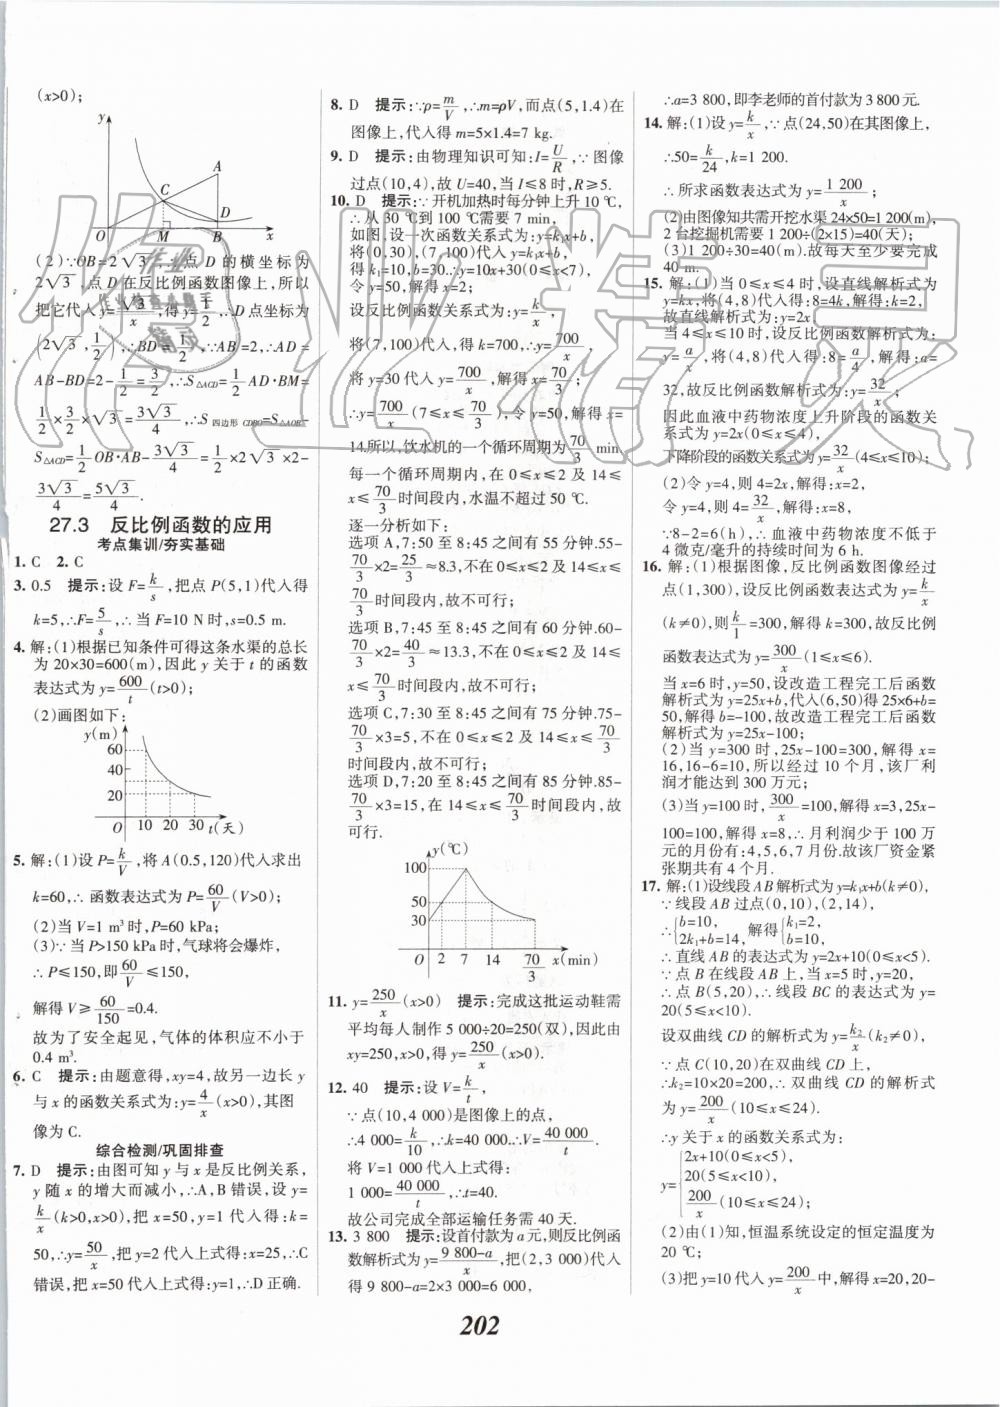 (x>0);
y
A
C
D
O
M
B
x
(2)∵OB=2√3,∴点D的横坐标为
2√3,点D在反比例函数图像上,所以
把它代入y=√3/x,得y=1/2,∴D点坐标为
(2√3,1/2),∴BD=1/2,∵AB=2,∴AD=
AB-BD=2-1/2=3/2,∴S△ACD=1/2AD·BM=
1/2×3/2×√3=3√3/4,∴S四边形CDBO=S△AOB-
S△ACD=1/2OB·AB-3√3/4=1/2×2√3×2-
3√3/4=5√3/4.
27.3 反比例函数的应用
考点集训/夯实基础
1. C 2. C
3. 0.5 提示:设F=k/s,把点P(5,1)代入得
k=5,∴F=5/s,∴当F=10 N时,s=0.5 m.
4. 解:(1)根据已知条件可得这条水渠的总长
为20×30=600(m),因此y关于t的函数
表达式为y=600/t(t>0);
(2)画图如下:
y(m)
60
40
20
O 10 20 30 t(天)
5. 解:(1)设P=k/V,将A(0.5,120)代入求出
k=60,∴函数表达式为P=60/V(V>0);
(2)当V=1 m³时,P=60 kPa;
(3)∵当P>150 kPa时,气球将会爆炸,
∴P≤150,即60/V≤150,
解得V≥60/150=0.4.
故为了安全起见,气体的体积应不小于
0.4 m³.
6. C 提示:由题意得,xy=4,故另一边长y
与x的函数关系式为:y=4/x(x>0),其图
像为C.
综合检测/巩固排查
7. D 提示:由图可知y与x是反比例关系,
y随x的增大而减小,∴A,B错误,设y=
k/x(k>0,x>0),把x=50,y=1代入得:k=
50,∴y=50/x,把y=2代入上式得:x=25,∴C
错误,把x=50代入上式得:y=1,∴D正确.
8. D 提示:∵ρ=m/V,∴m=ρV,而点(5,1.4)在
图像上,代入得m=5×1.4=7 kg.
9. D 提示:由物理知识可知:I=U/R,∵图像
过点(10,4),故U=40,当I≤8时,R≥5.
10. D 提示:∵开机加热时每分钟上升10 ℃,
∴从30 ℃到100 ℃需要7 min,
如图,设一次函数关系式为:y=k₁x+b,
将(0,30),(7,100)代入y=k₁x+b,
得k₁=10,b=30.∴y=10x+30(0≤x<7),
令y=50,解得x=2;
设反比例函数关系式为:y=k/x,
将(7,100)代入,得k=700,∴y=700/x,
将y=30代入y=700/x,解得x=70/3;
∴y=700/x(7≤x≤70/3),令y=50,解得x=
14.所以,饮水机的一个循环周期为70/3 min,
每一个循环周期内,在0≤x≤2及14≤
x≤70/3时间段内,水温不超过50 ℃.
逐一分析如下:
选项A,7:50至8:45之间有55分钟.55-
70/3×2=25/3≈8.3,不在0≤x≤2及14≤x≤
70/3时间段内,故不可行;
选项B,7:45至8:45之间有60分钟.60-
70/3×2=40/3≈13.3,不在0≤x≤2及14≤
x≤70/3时间段内,故不可行;
选项C,7:30至8:45之间有75分钟.75-
70/3×3=5,不在0≤x≤2及14≤x≤70/3
时间段内,故不可行;
选项D,7:20至8:45之间有85分钟.85-
70/3×3=15,在14≤x≤70/3时间段内,故
可行.
y(℃)
100
50
30
O 2 7 14 70/3 x(min)
11. y=250/x(x>0) 提示:完成这批运动鞋需
平均每人制作5 000÷20=250(双),因此由
xy=250,x>0,得y=250/x(x>0).
12. 40 提示:设V=k/t,
∵点(10,4 000)是图像上的点,
∴4 000=k/10,∴k=40 000.∴V=40 000/t.
将V=1 000代入上式得:
1 000=40 000/t,∴t=40.
故公司完成全部运输任务需40天.
13. 3 800 提示:设首付款为a元,则反比例函
数解析式为y=9 800-a/x,把(2,3 000)代入,
得9 800-a=2×3 000=6 000,
∴a=3 800,即李老师的首付款为3 800元.
14. 解:(1)设y=k/x,∵点(24,50)在其图像上,
∴50=k/24,k=1 200.
∴所求函数表达式为y=1 200/x;
(2)由图像知共需开挖水渠24×50=1 200(m),
2台挖掘机需要1 200÷(2×15)=40(天);
(3)1 200÷30=40(m).故每天至少要完成
40 m.
15. 解:(1)当0≤x≤4时,设直线解析式为
y=kx,将(4,8)代入得:8=4k,解得:k=2,
故直线解析式为:y=2x,
当4≤x≤10时,设反比例函数解析式为:
y=a/x,将(4,8)代入得:8=a/4,解得:a=
32,故反比例函数解析式为:y=32/x;
因此血液中药物浓度上升阶段的函数关
系式为y=2x(0≤x≤4),
下降阶段的函数关系式为y=32/x(4≤x≤10);
(2)令y=4,则4=2x,解得:x=2,
令y=4,则4=32/x,解得:x=8,
∵8-2=6(h),∴血液中药物浓度不低于
4微克/毫升的持续时间为6 h.
16. 解:(1)根据图像,反比例函数图像经过
点(1,300),设反比例函数表达式为y=k/x
(k≠0),则k/1=300,解得k=300,故反比例
函数表达式为y=300/x(1≤x≤6).
当x=6时,y=50,设改造工程完工后函数
解析式为y=25x+b,代入(6,50)得25×6+b=
50,解得b=-100,故改造工程完工后函数
解析式为y=25x-100;
(2)当y=300时,25x-100=300,解得x=
16,16-6=10,所以经过10个月,该厂利
润才能达到300万元;
(3)当y=100时,300/x=100,解得x=3,25x-
100=100,解得x=8,∴月利润少于100万
元的月份有:4,5,6,7月份.故该厂资金紧
张期共有4个月.
17. 解:(1)设线段AB解析式为y=k₁x+b(k≠0),
∵线段AB过点(0,10),(2,14),
∴{b=10, 2k₁+b=14, 解得{k₁=2, b=10,
∴直线AB的表达式为y=2x+10(0≤x<5).
∵点B在线段AB上,当x=5时,y=20,
∴点B(5,20),∴线段BC的表达式为y=
20(5≤x<10).
设双曲线CD的解析式为y=k₂/x(k₂≠0),
∵点C(10,20)在双曲线CD上,
∴k₂=10×20=200,∴双曲线CD的解析式
为y=200/x(10≤x≤24).
∴y关于x的函数关系式为:
y={2x+10(0≤x<5),
20(5≤x<10),
200/x(10≤x≤24);
(2)由(1)知,恒温系统设定的恒定温度为
20 ℃;
(3)把y=10代入y=200/x中,解得x=20,20-
202